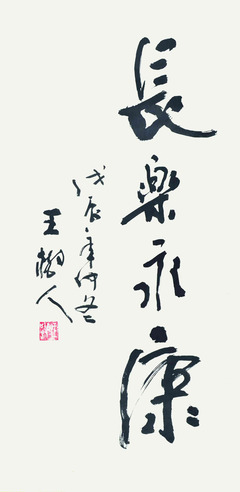 長樂永康
戊辰年仲冬
王樹人